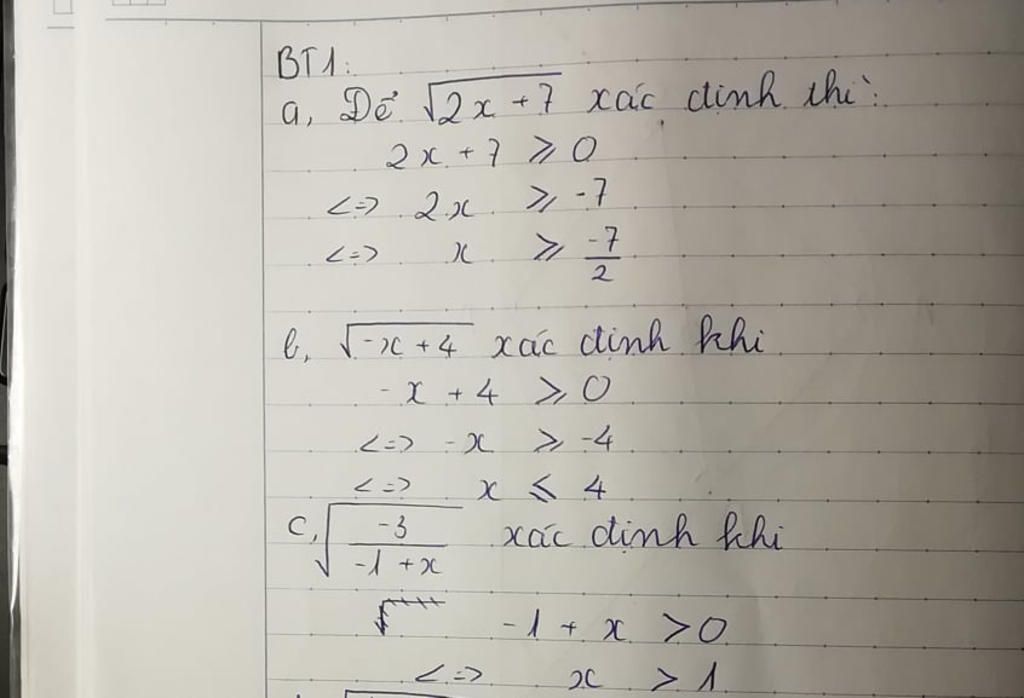 BT1:
a, Để √(2x + 7) xác định thì:
2x + 7 ⩾ 0
<=> 2x ⩾ -7
<=> x ⩾ -7/2
b, √(-x + 4) xác định khi
-x + 4 ⩾ 0
<=> -x ⩾ -4
<=> x ⩽ 4
c, √(-3/(-1 + x)) xác định khi
-1 + x > 0
<=> x > 1